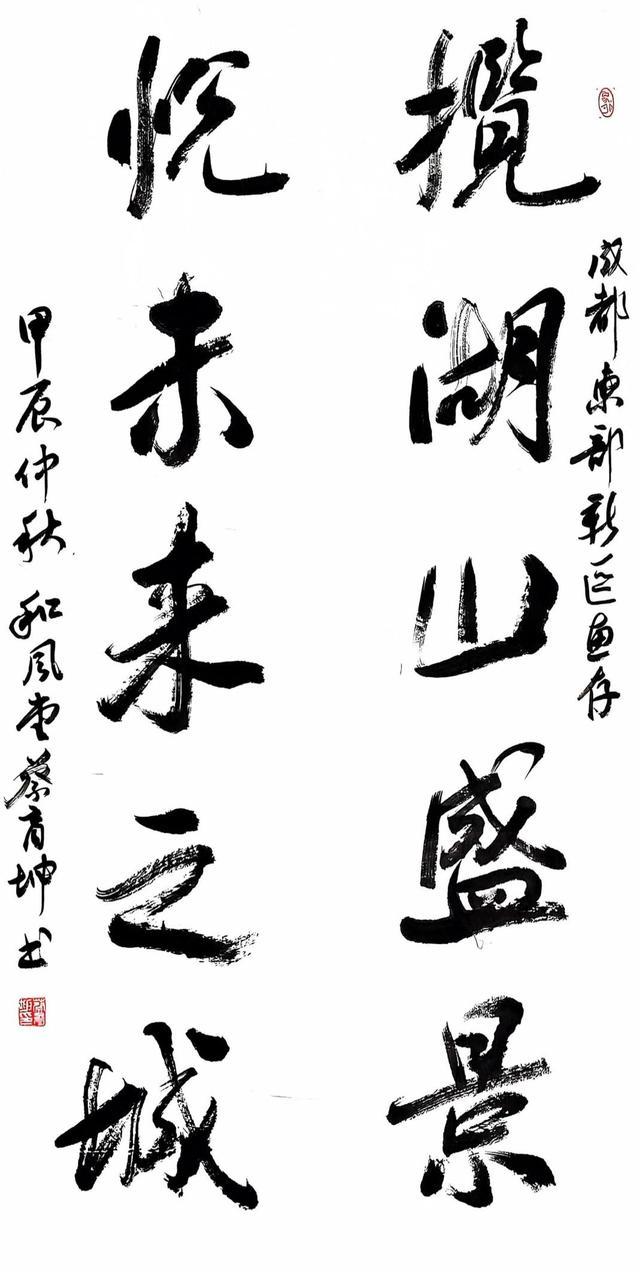 成都东部新区惠存
揽湖山盛景
悦未来之城
甲辰仲秋 和风堂蔡育坤书